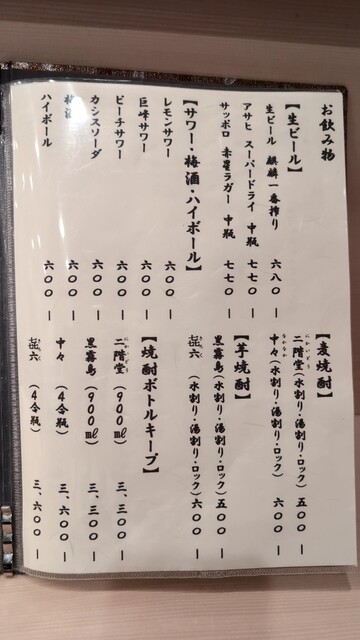 お飲み物
【生ビール】
生ビール 麒麟一番搾り 六八〇ー
アサヒ スーパードライ 中瓶 七七〇ー
サッポロ 赤星ラガー 中瓶 七七〇ー
【サワー・梅酒・ハイボール】
レモンサワー 六〇〇ー
巨峰サワー 六〇〇ー
ピーチサワー 六〇〇ー
カシスソーダ 六〇〇ー
梅酒 六〇〇ー
ハイボール 六〇〇ー
【麦焼酎】
二階堂(水割り・湯割り・ロック) 五〇〇ー
中々(水割り・湯割り・ロック) 六〇〇ー
【芋焼酎】
黒霧島(水割り・湯割り・ロック) 五〇〇ー
㐂六(水割り・湯割り・ロック) 六〇〇ー
【焼酎ボトルキープ】
二階堂(900㎖) 三、三〇〇ー
黒霧島(900㎖) 三、三〇〇ー
中々(4合瓶) 三、六〇〇ー
㐂六(4合瓶) 三、六〇〇ー